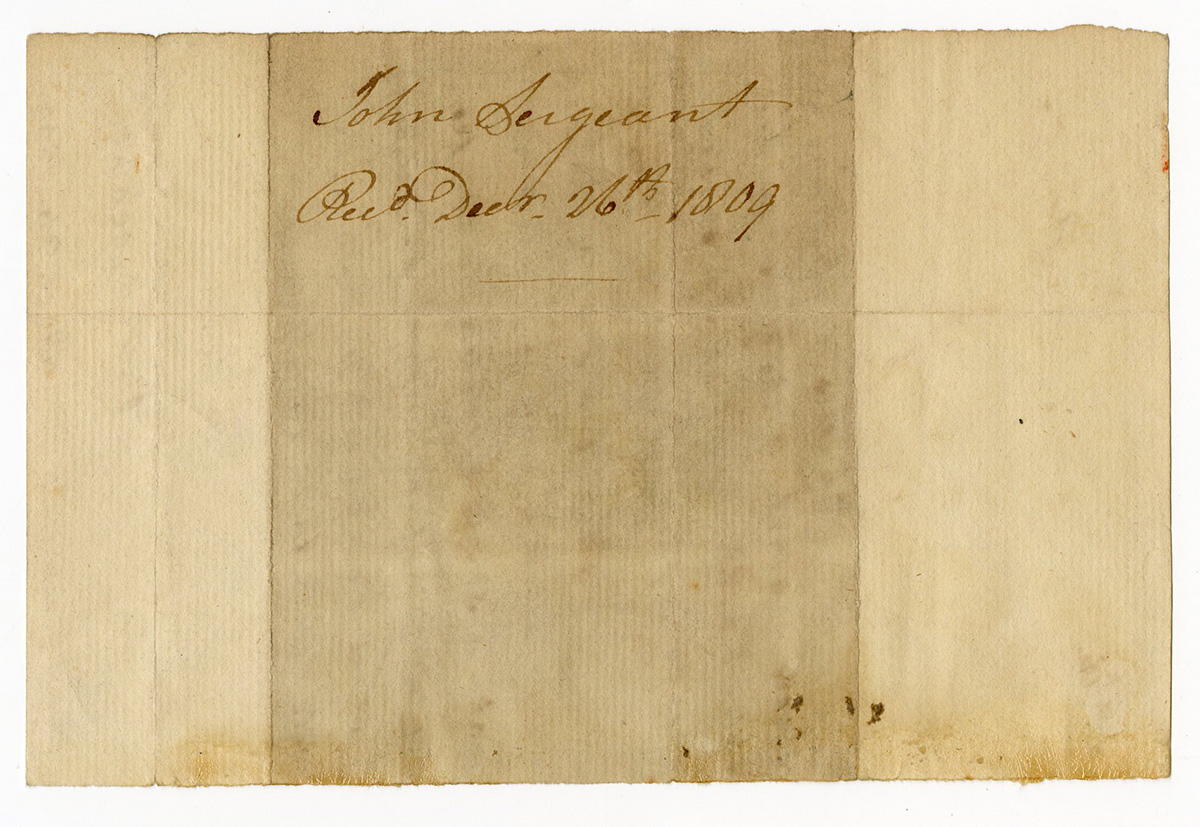 John Sergeant
Recd. Decr. 26th 1809